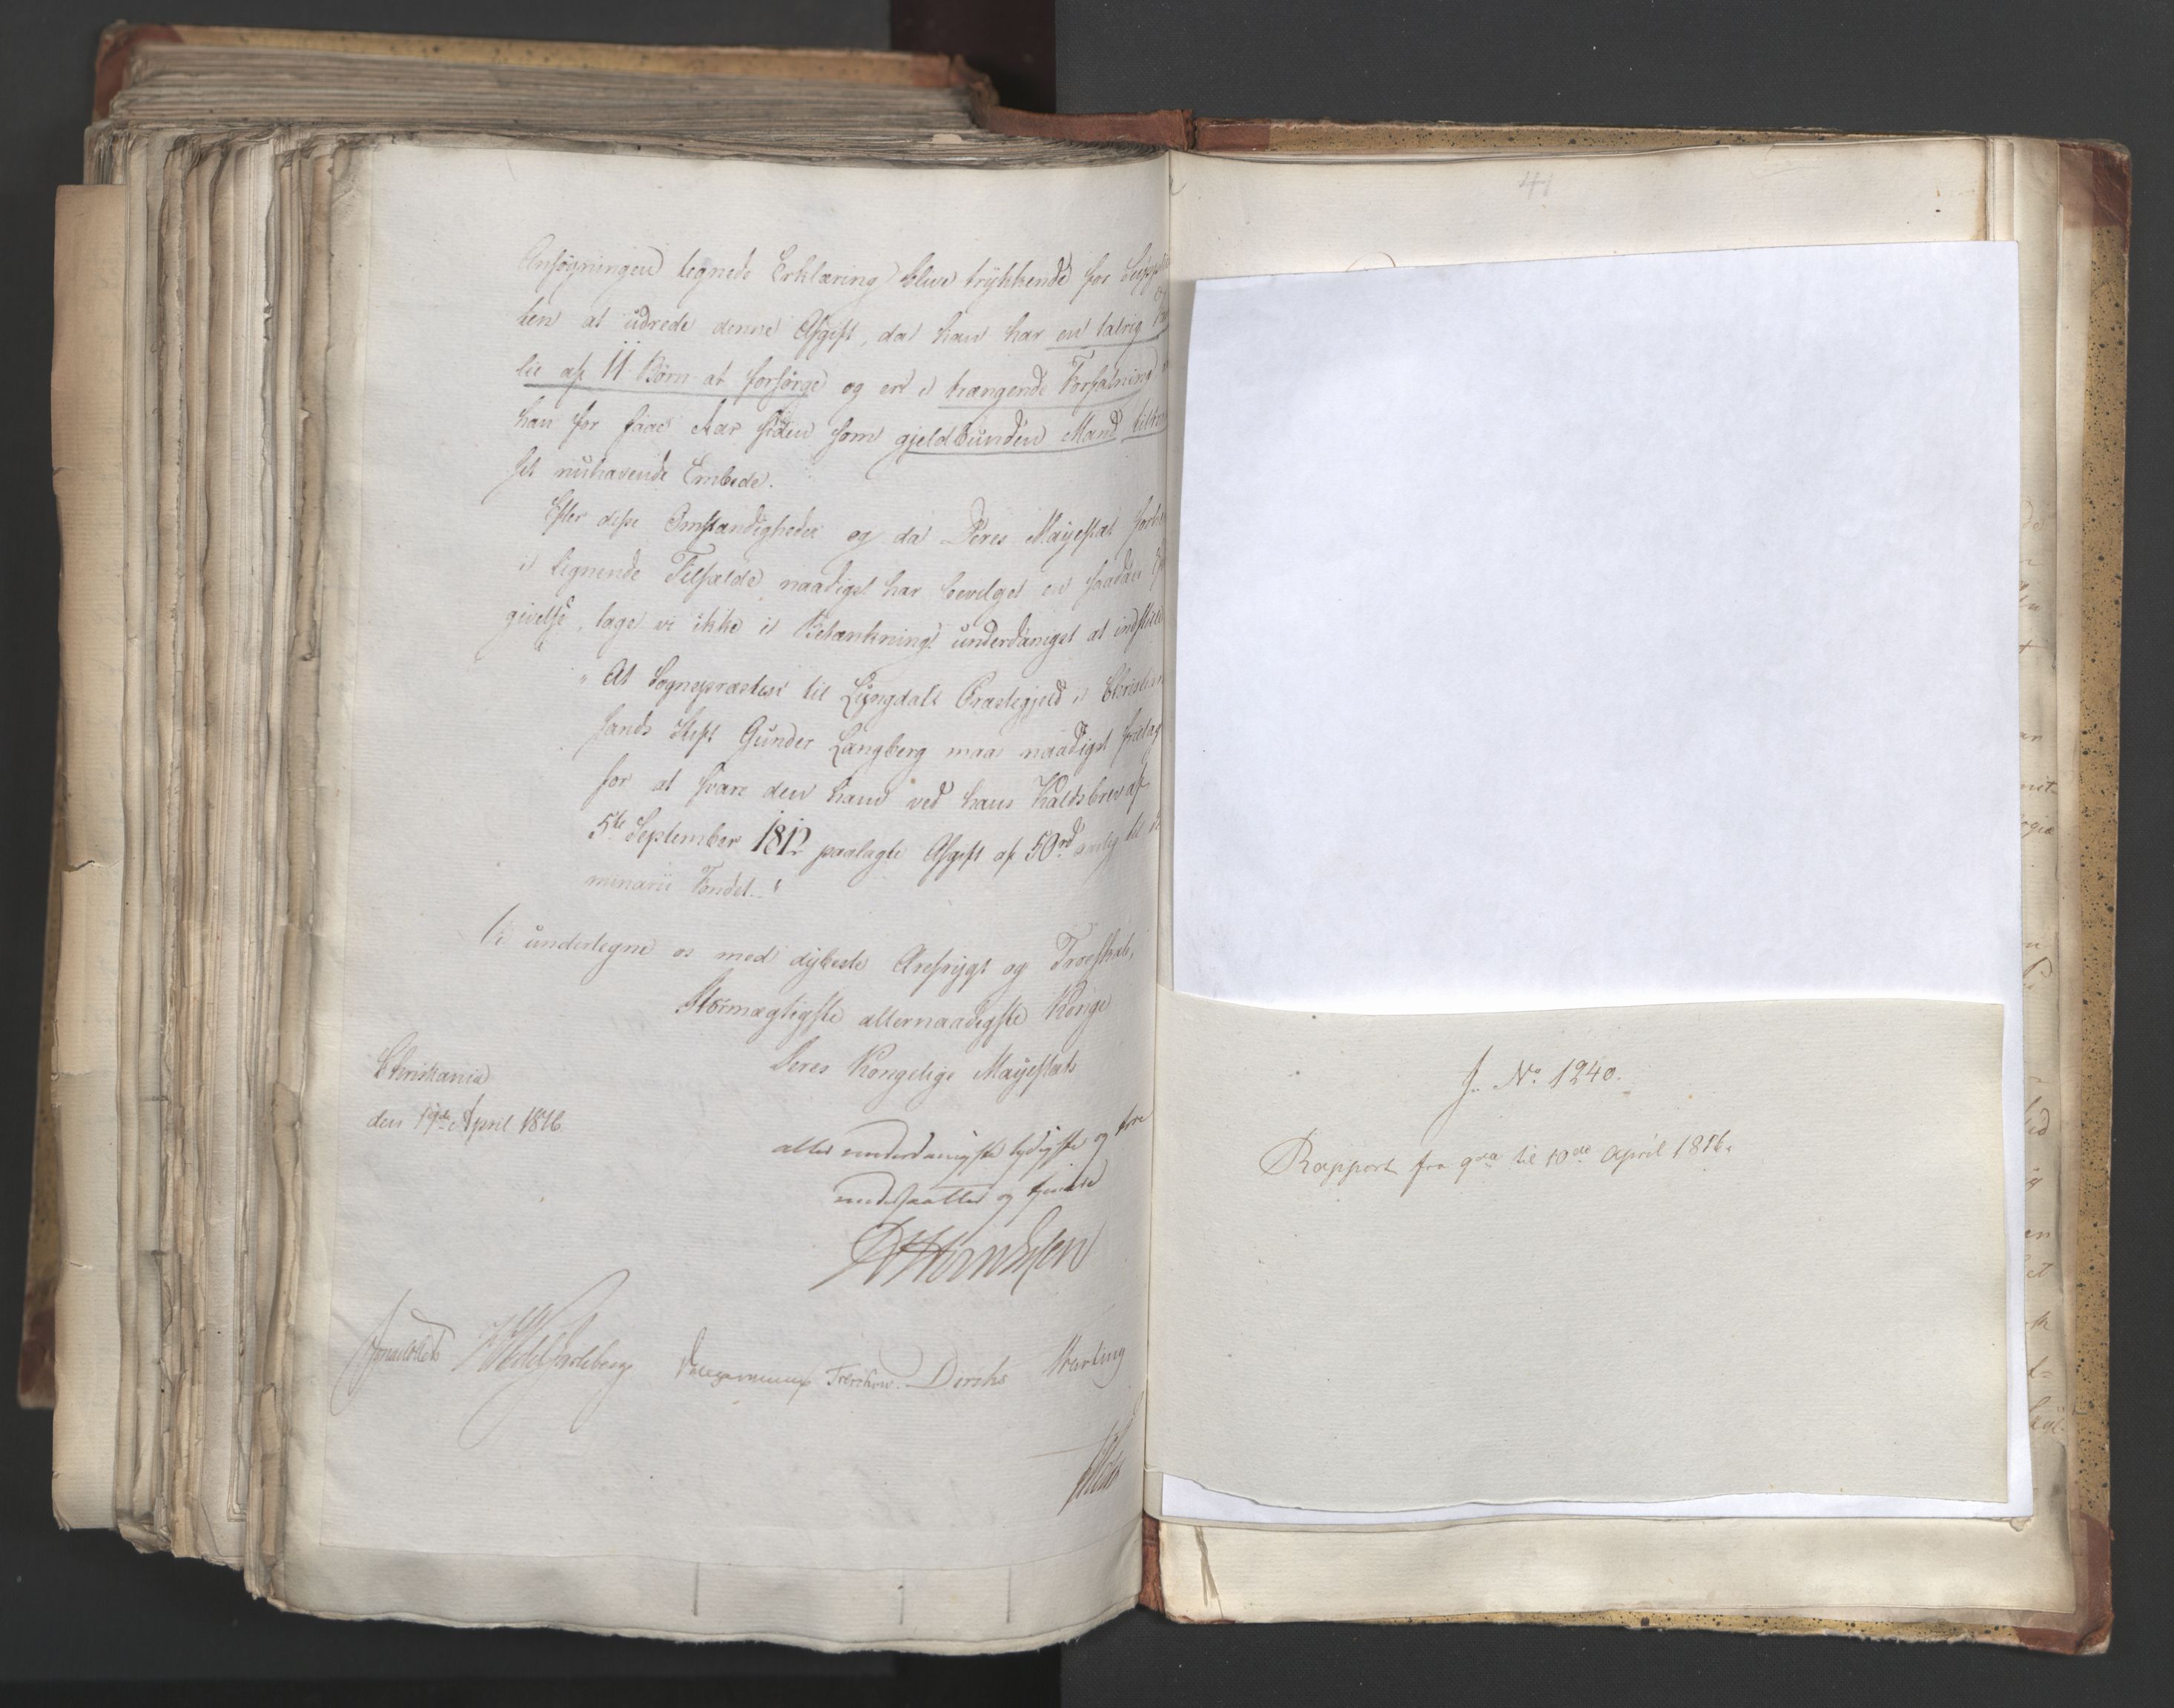 Ansøgningen tegnede Erklæring blive trykkende for Supp
ten at udrede denne Afgift, da han har en talrig
lie af 11 Børn at forsørge og er i trængende Forfatning
han for faae Aar siden som gjeldbunden Mand
sit nuhavende Embede.
Efter disse Omstændigheder og da Deres Majestæt
i lignende Tilfælde naadigst har bevilget en saadan
givelse, tage vi ikke i Betænkning underdanigst at indstille
" At Sognepræsten til Lyngdals Præstegjeld i Christian
sands Stift Gunder Langberg maa naadigst fritag
for at svare den ham ved hans Kaldsbrev af
5te September 1812 paalagte Afgift af 50 rd aarlig til
minarii Fondet."
Vi undertegne os med dybeste Ærefrygt og Troeskab,
Stormægtigste allernaadigste Konge
Deres Kongelige Majestæts
Christiania
den April 1816.
aller underdanigste lydigste og troe
undersaatter og tjenere
Sommerhielm Wedel Jarlsberg Treschow Diriks Motzfeldt
41
J. No 1240.
Rapport fra 9de til 10de April 1816.